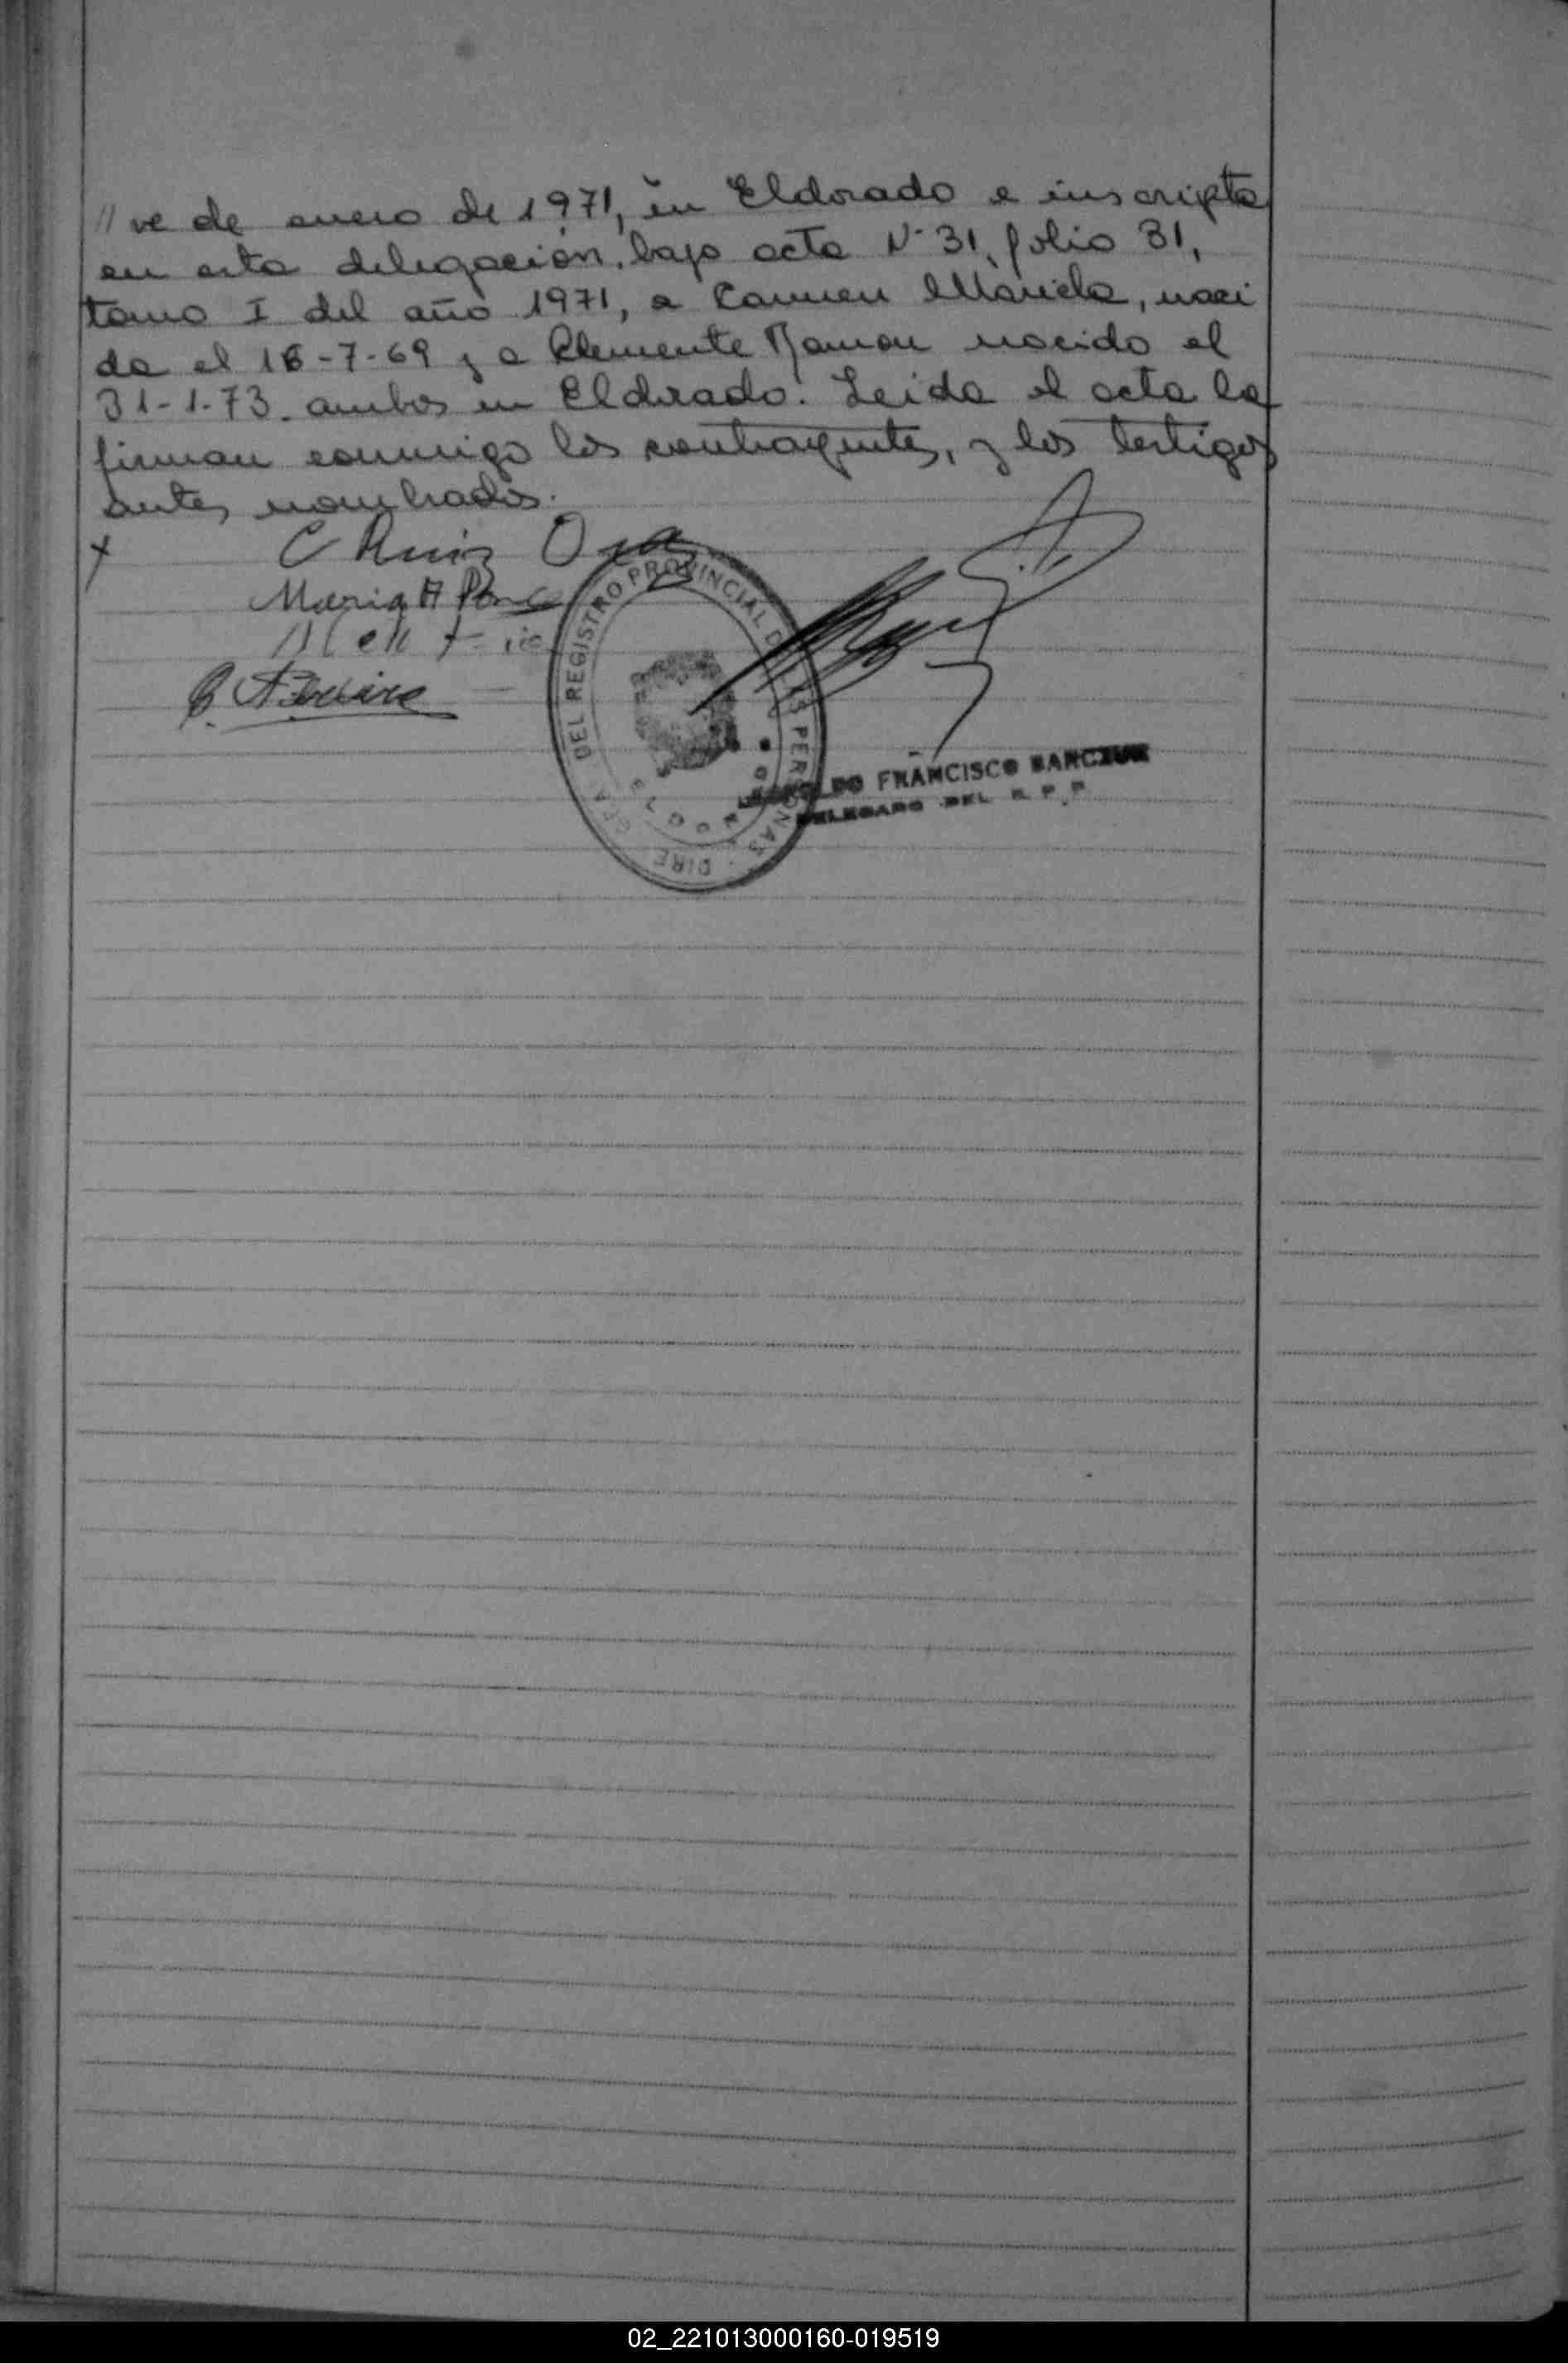 // ve de enero de 1971, en Eldorado e inscripta
en esta delegación, bajo acta N· 31, folio 31,
tomo I del año 1971, a Carmen Mariela, naci
da el 16-7-69 y a Clemente Ramon nacido el
31-1-73. ambos en Eldorado. Leida el acta la
firman conmigo los contrayentes, y los testigos
antes nombrados.
C Ruiz
Maria A Ponce
DEL REGISTRO PROVINCIAL DE LAS PERSONAS
FRANCISCO
DELEGADO DEL R. P. P.
02_221013000160-019519